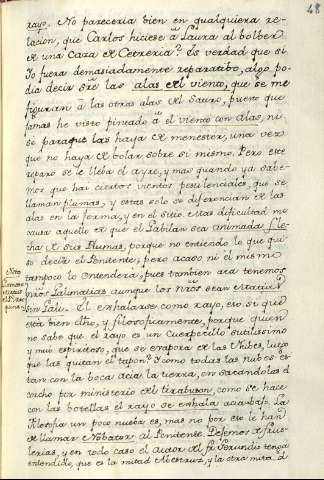 48
rayo. No pareceria bien en qualquiera re-
lacion, que Carlos hiciese â Laura al bolber
de una caza de Cetreria? Es verdad que si
Yo fuera demasiadamente reparatibo, algo po-
dia decir sre las alas del viento, que se me
figuran â las otras alas del Sauro, puesto que
jamas he visto pintado â el viento con alas, ni
se paraque las haya de menester, una vez
que no haya de bolar sobre si mismo. Pero este
reparo se le lleba el ayre, y mas quando ya sabe-
mos que hai ciertos vientos pestilenciales, que se
llaman plumas, y estas solo se diferencian de las
alas en la forma, y en el sitio. Mas dificultad me
causa aquello de que el Gabilan sea animada fle-
cha de sus Plumas, porque no entiendo lo que qui-
so decir el Penitente, pero acaso ni él mismo
tampoco lo entenderá, pues tambien acá tenemos
nros Galimatias aunque los nros sean
Gali. El exhalarse como rayo, eso si que
está bien dho, y filosoficamente, porque quien
no sabe que el rayo es un cuerpecillo sutilissimo
y mui espiritoso, que se evapora de las Nubes, luego
que las quitan el tapon? Y como todas las nubes es-
tan con la boca acia la tierra, en sacandolas el
corcho por ministerio del tirabuzon, como se hace
con las botellas el rayo se exhala acia abajo. La
filosofia un poco nueba es, mas no por eso le han
de llamar Nobator al Penitente. Dejemos de frus-
lerias, y en todo caso el autor del fr Gerundio tenga
entendido, que es la mitad Abestruz, y la otra mitad
Nota